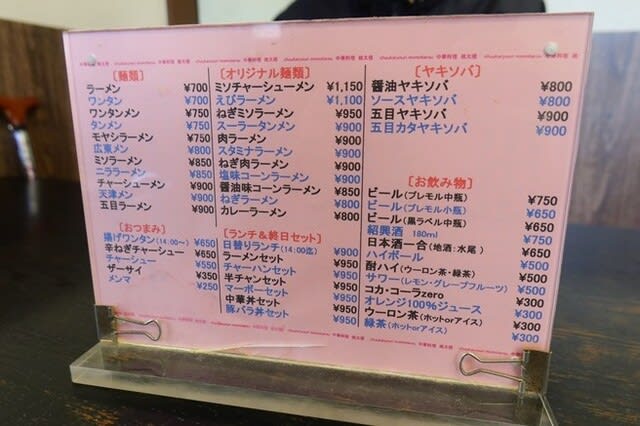 chuukaryouri momotarou 中華料理
[麺類]
ラーメン ¥700
ワンタン ¥700
ワンタンメン ¥750
タンメン ¥750
モヤシラーメン ¥750
広東メン ¥800
ミソラーメン ¥850
ニララーメン ¥850
チャーシューメン ¥900
天津メン ¥900
五目ラーメン ¥900
[おつまみ]
揚げワンタン(14:00〜) ¥650
辛ねぎチャーシュー ¥650
チャーシュー ¥550
ザーサイ ¥350
メンマ ¥250
[オリジナル麺類]
ミソチャーシューメン ¥1,150
えびラーメン ¥1,100
ねぎミソラーメン ¥950
スーラータンメン ¥900
肉ラーメン ¥900
スタミナラーメン ¥900
ねぎ肉ラーメン ¥900
塩味コーンラーメン ¥900
醤油味コーンラーメン ¥850
ねぎラーメン ¥800
カレーラーメン ¥800
[ランチ&終日セット]
日替りランチ(14:00迄) ¥900
ラーメンセット ¥950
チャーハンセット ¥950
半チャンセット ¥950
マーボーセット ¥950
中華丼セット ¥950
豚バラ丼セット ¥950
[ヤキソバ]
醤油ヤキソバ ¥800
ソースヤキソバ ¥800
五目ヤキソバ ¥900
五目カタヤキソバ ¥900
[お飲み物]
ビール(プレモル中瓶) ¥750
ビール(プレモル小瓶) ¥650
ビール(黒ラベル中瓶) ¥650
紹興酒 180ml ¥750
日本酒一合(地酒:水尾) ¥650
ハイボール ¥500
酎ハイ(ウーロン茶・緑茶) ¥500
サワー(レモン・グレープフルーツ) ¥500
コカ・コーラzero ¥300
オレンジ100%ジュース ¥300
ウーロン茶(ホットorアイス) ¥300
緑茶(ホットorアイス) ¥300